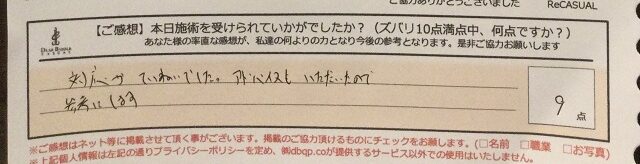 ご協力ありがとうございました
ReCASUAL
【ご感想】本日施術を受けられていかがでしたか？（ズバリ10点満点中、何点ですか？）
あなた様の率直な感想が、私達の何よりの力となり今後の参考となります。是非ご協力お願いします
対応がていねいでした。アドバイスもいただいたので
参考にします
9 点
※ご感想はネット等に掲載させて頂く事がございます。掲載のご協力頂けるものにチェックをお願します。（□名前 □職業 □お写真）
※上記個人情報は左記の通りプライバシーポリシーを定め、㈱dbqp.coが提供するサービス以外での使用はいたしません。